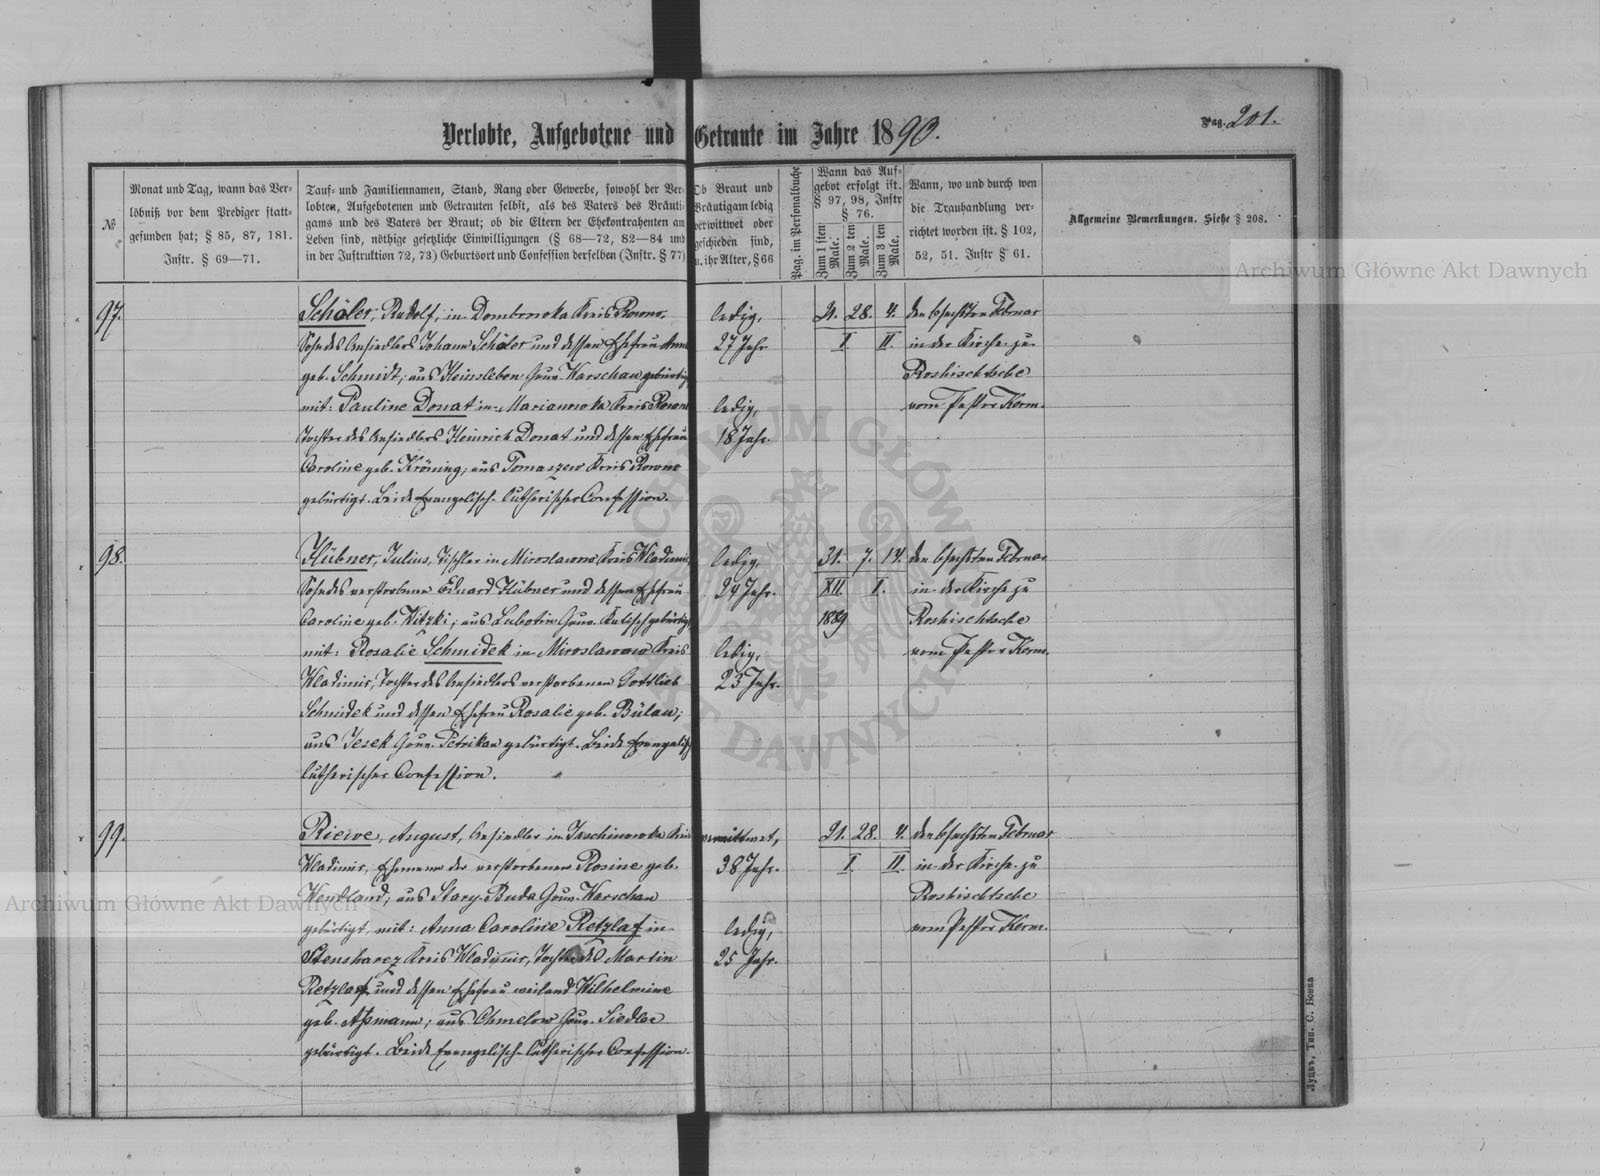 Verlobte, Aufgebotene und Getraute im Jahre 1890.
Pag. 201.
№
Monat und Tag, wann das Ver-
löbniß vor dem Prediger statt-
gefunden hat; § 85, 87, 181.
Instr. § 69—71.
Tauf- und Familiennamen, Stand, Rang oder Gewerbe, sowohl der Ver-
lobten, Aufgebotenen und Getrauten selbst, als des Vaters des Bräuti-
gams und des Vaters der Braut; ob die Eltern der Ehekontrahenten am
Leben sind, nöthige gesetzliche Einwilligungen (§ 68—72, 82—84 und
in der Instruktion 72, 73) Geburtsort und Confession derselben (Instr. § 77)
Ob Braut und
Bräutigam ledig
verwittwet oder
geschieden sind,
u. ihr Alter, § 66
Pag. im Personalbuche
Wann das Auf-
gebot erfolgt ist.
§ 97, 98, Instr
§ 76.
Zum 1 sten Male.
Zum 2 ten Male.
Zum 3 ten Male.
Wann, wo und durch wen
die Trauhandlung ver-
richtet worden ist. § 102,
52, 51. Instr § 61.
Allgemeine Bemerkungen. Siehe § 208.
97.
Schöler, Rudolf, in Dombrowka Kreis Rowno,
Sohn des Ansiedlers Johann Schöler und dessen Ehefrau Anna
geb. Schmidt; aus Heinsleben Gouv. Warschau gebürtig
mit: Pauline Donat in Marianowka Kreis Rowno
Tochter des Ansiedlers Heinrich Donat und dessen Ehefrau
Caroline geb. Kröning; aus Tomaszew Kreis Rowno
gebürtigt. Beide Evangelisch-lutherischer Confession.
ledig,
27 Jahr
ledig,
18 Jahr.
21. 28. 4.
I. II.
den sechsten Februar
in der Kirche zu
Roshischtsche
vom Pastor Kerm.
98.
Hübner, Julius, Tischler in Miroslawno Kreis Wladimir,
Sohn des verstorbenen Eduard Hübner und dessen Ehefrau
Caroline geb. Witzki; aus Lubotin Gouv. Kalisch gebürtigt,
mit: Rosalie Schmidek in Miroslawno Kreis
Wladimir, Tochter des Ansiedlers verstorbenen Gottlieb
Schmidek und dessen Ehefrau Rosalie geb. Bülau;
aus Jesek Gouv. Petrikau gebürtigt. Beide Evangelisch
lutherischer Confession.
ledig,
24 Jahr.
ledig,
23 Jahr.
31. 7. 14.
XII. I.
1889
den sechsten Februar
in der Kirche zu
Roshischtsche
vom Pastor Kerm.
99.
Riewe, August, Ansiedler in Jaschinowka Kreis
Wladimir, Ehemann der verstorbenen Rosine geb.
Wendland; aus Stary-Buda Gouv. Warschau
gebürtigt, mit: Anna Caroline Retzlaf in
Stensharez Kreis Wladimir, Tochter des Martin
Retzlaf und dessen Ehefrau weiland Wilhelmine
geb. Aßmann; aus Chmelow Gouv. Siedlce
gebürtigt. Beide Evangelisch-lutherischer Confession.
verwittwet,
38 Jahr.
ledig,
25 Jahr.
21. 28. 4.
I. II.
den sechsten Februar
in der Kirche zu
Roshischtsche
vom Pastor Kerm.
Луцкъ, Тип. С. Бонка
Archiwum Główne Akt Dawnych
Archiwum Główne Akt Dawnych
ARCHIWUM GŁÓWNE AKT DAWNYCH